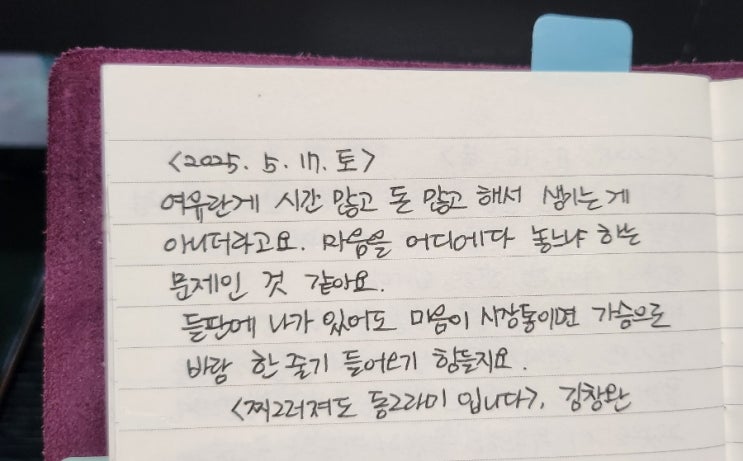 <2025. 5. 17. 토>
여유란게 시간 많고 돈 많고 해서 생기는 게
아니더라고요. 마음을 어디에다 놓느냐 하는
문제인 것 같아요.
들판에 나가 있어도 마음이 시장통이면 가슴으로
바람 한 줄기 들어오기 힘들지요.
<찌그러져도 동그라미 입니다>, 김창완